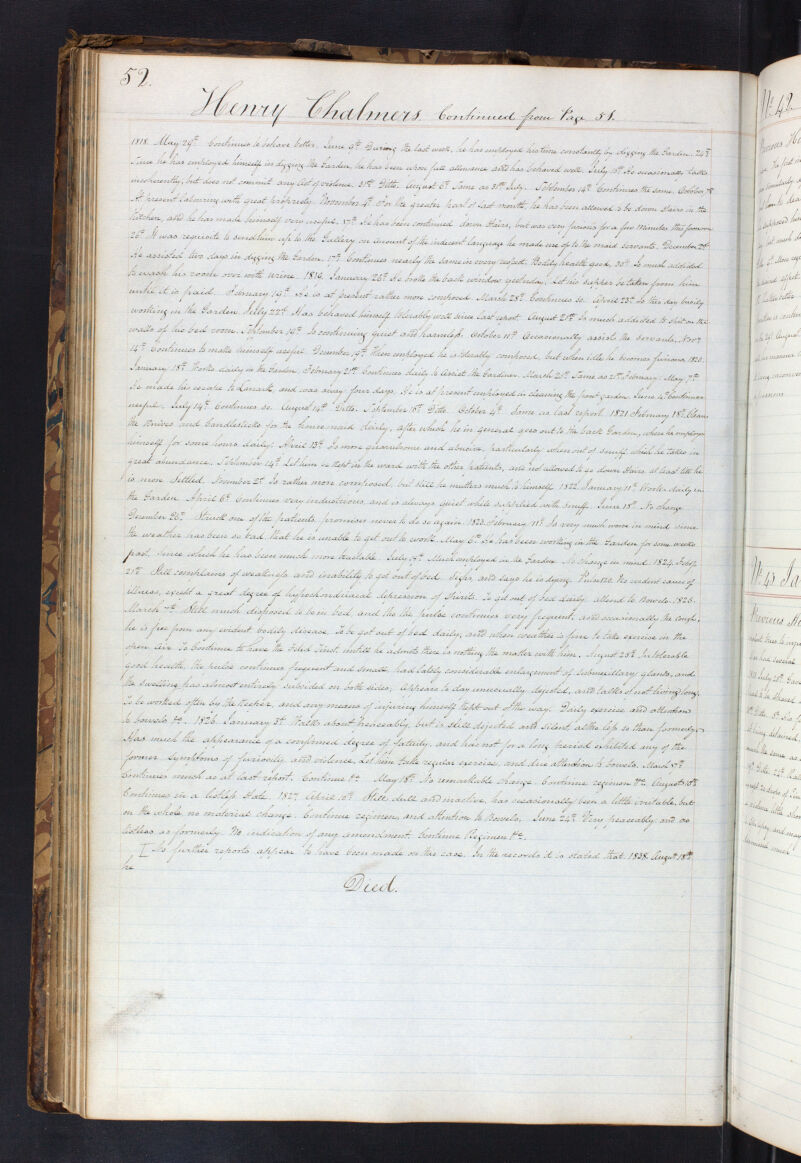 52.
Henry Chalmers Continued from Page 51.
1818. May 29th Continues to behave better. June 9th During the last week, he has employed his time constantly by digging the Garden. 24th
Since he has employed himself in digging the Garden, he has been upon full allowance and has behaved well. July 18th He occasionally talks
incoherently, but does not commit any Act of violence. 31st Ditto. August 6th Same as 31st July. September 14th Continues the same. October
At present labouring with great propriety. November 4th For the greater part of last month, he has been allowed to be down stairs in the
Kitchen, and he has made himself very useful. 17th He has been continued down stairs, but was very furious for a few minutes this forenoon
26th It was requisite to send him up to the Gallery on account of the indecent language he made use of to the maid servants. December 2nd
He assisted two days in digging the Garden. 17th Continues nearly the same in every respect. Bodily health good. 30th So much addicted
to wash his room over with urine. 1819. January 25th He broke the back window yesterday, Let his supper be taken from him
until it is paid. February 14th He is at present rather more composed. March 28th Continues so. April 23rd Is this day busily
working in the Garden. July 22nd Has behaved himself tolerably well since last report. August 21st Is much addicted to spit on the
walls of his bed room. September 19th Is continuing quiet and harmless. October 11th Occasionally assists the servants. Novr
14th Continues to make himself useful. December 19th When employed he is tolerably composed, but when idle he becomes furious. 1820.
January 18th Works daily in the Garden. February 21st Continues daily to assist the Gardener. March 21st Same as 21st February. May 7th
He made his escape to Lanark, and was away four days. He is at present employed in cleaning the front garden. June 4th Continues
useful. July 14th Continues so. August 14th Ditto. September 16th Ditto. October 4th Same as last report. 1821 February 18th Cleans
the Knives and Candlesticks for the house maid daily, after which he in general goes out to the back Garden, where he employs
himself for some hours daily. April 13th Is more quarrelsome and abusive, particularly when out of snuff, which he takes in
great abundance. September 14th Let him be kept in the ward with the other patients, and not allowed to go down stairs at least till he
is more settled. December 2nd Is rather more composed, but still he mutters much to himself. 1822 January 11th Works daily in
the Garden. April 6th Continues very industrious, and is always quiet while supplied with snuff. June 18th No change.
December 26th Struck one of the patients, promises never to do so again. 1823. February 11th Is very much worse in mind since
the weather has been so bad, that he is unable to get out to work. May 6th He has been working in the Garden for some weeks
past, since which he has been much more tractable. July 17th Much employed in the Garden. No change in mind. 1824.
21st Still complains of weakness and inability to get out of bed. Sighs, and says he is dying. No evident cause of
illness, except a great degree of hypochondriacal depression of Spirits. To get out of bed daily, attend to Bowels. 1825.
March 7th Still much disposed to be in bed, and tho' the pulse continues very frequent, and occasionally the cough,
he is free from any evident bodily disease. To be got out of bed daily, and when weather is fine to take exercise in the
open air. To Continue to have the untill he admits there is nothing the matter with him. August 25th In tolerable
good health, the pulse continues frequent and small, had lately considerable enlargement of submaxillary glands, and
the swelling has almost entirely subsided on both sides. Appears to day unusually dejected, and talks of not living long.
To be worked often by the Keeper, and any means of injuring himself kept out of the way. Daily exercise and attention
to bowels &c. 1826. January 3rd Walks about peaceably, but is still dejected and silent altho' less so than formerly.
Has much the appearance of a confirmed degree of fatuity, and has not for a long period exhibited any of the
former symptoms of furiosity and violence. Let him take regular exercise, and due attention to bowels. March 5th
Continues much as at last report. Continue &c. May 18th No remarkable change. Continue regimen &c. August 16th
Continues in a listless state. 1827 April 10th Still dull and inactive, has occasionally been a little irritable, but
on the whole no material change. Continue regimen, and attention to Bowels. June 24th Very peaceably and as
listless as formerly. No indication of any amendment. Continue Regimen &c.
[No further reports appear to have been made on this case. In the records it is stated that 1838 August 18th
he
Died.
No. 42
No. 43 Ja